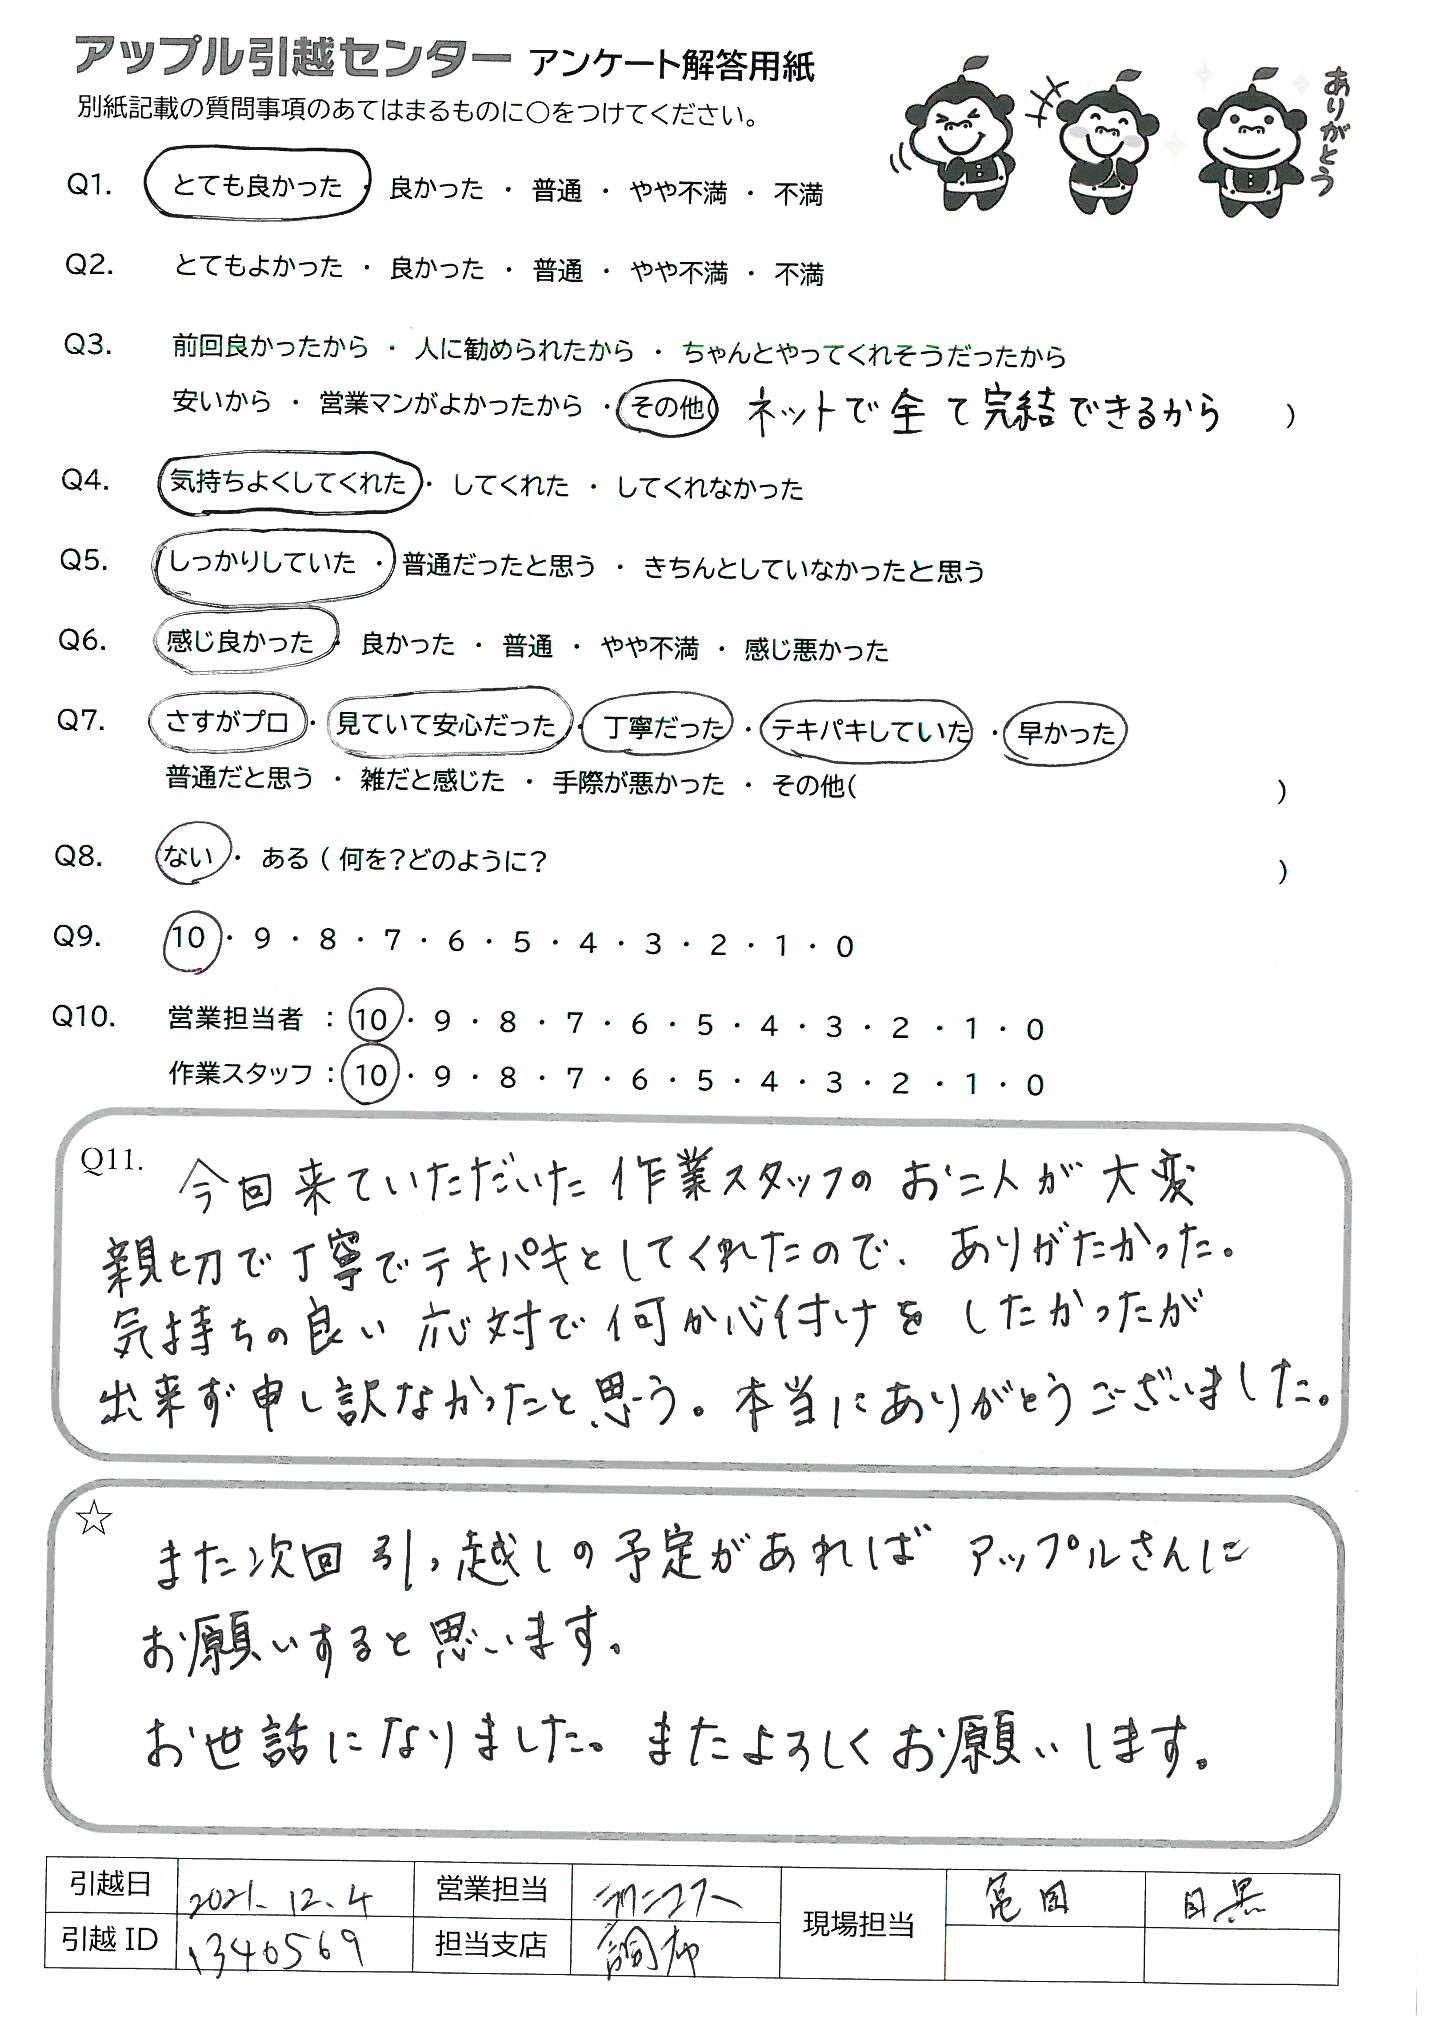 アップル引越センター アンケート解答用紙
別紙記載の質問事項のあてはまるものに○をつけてください。
ありがとう
Q1. とても良かった ・ 良かった ・ 普通 ・ やや不満 ・ 不満
Q2. とてもよかった ・ 良かった ・ 普通 ・ やや不満 ・ 不満
Q3. 前回良かったから ・ 人に勧められたから ・ ちゃんとやってくれそうだったから
安いから ・ 営業マンがよかったから ・ その他( ネットで全て完結できるから )
Q4. 気持ちよくしてくれた ・ してくれた ・ してくれなかった
Q5. しっかりしていた ・ 普通だったと思う ・ きちんとしていなかったと思う
Q6. 感じ良かった ・ 良かった ・ 普通 ・ やや不満 ・ 感じ悪かった
Q7. さすがプロ ・ 見ていて安心だった ・ 丁寧だった ・ テキパキしていた ・ 早かった
普通だと思う ・ 雑だと感じた ・ 手際が悪かった ・ その他( )
Q8. ない ・ ある ( 何を?どのように? )
Q9. 10 ・ 9 ・ 8 ・ 7 ・ 6 ・ 5 ・ 4 ・ 3 ・ 2 ・ 1 ・ 0
Q10. 営業担当者 : 10 ・ 9 ・ 8 ・ 7 ・ 6 ・ 5 ・ 4 ・ 3 ・ 2 ・ 1 ・ 0
作業スタッフ : 10 ・ 9 ・ 8 ・ 7 ・ 6 ・ 5 ・ 4 ・ 3 ・ 2 ・ 1 ・ 0
Q11. 今回来ていただいた作業スタッフのお二人が大変
親切で丁寧でテキパキとしてくれたので、ありがたかった。
気持ちの良い応対で何か心付けをしたかったが
出来ず申し訳なかったと思う。本当にありがとうございました。
☆
また次回引っ越しの予定があればアップルさんに
お願いすると思います。
お世話になりました。またよろしくお願いします。
引越日 2021.12.4 営業担当 現場担当 亀田 目黒
引越ID 1340569 担当支店 調布